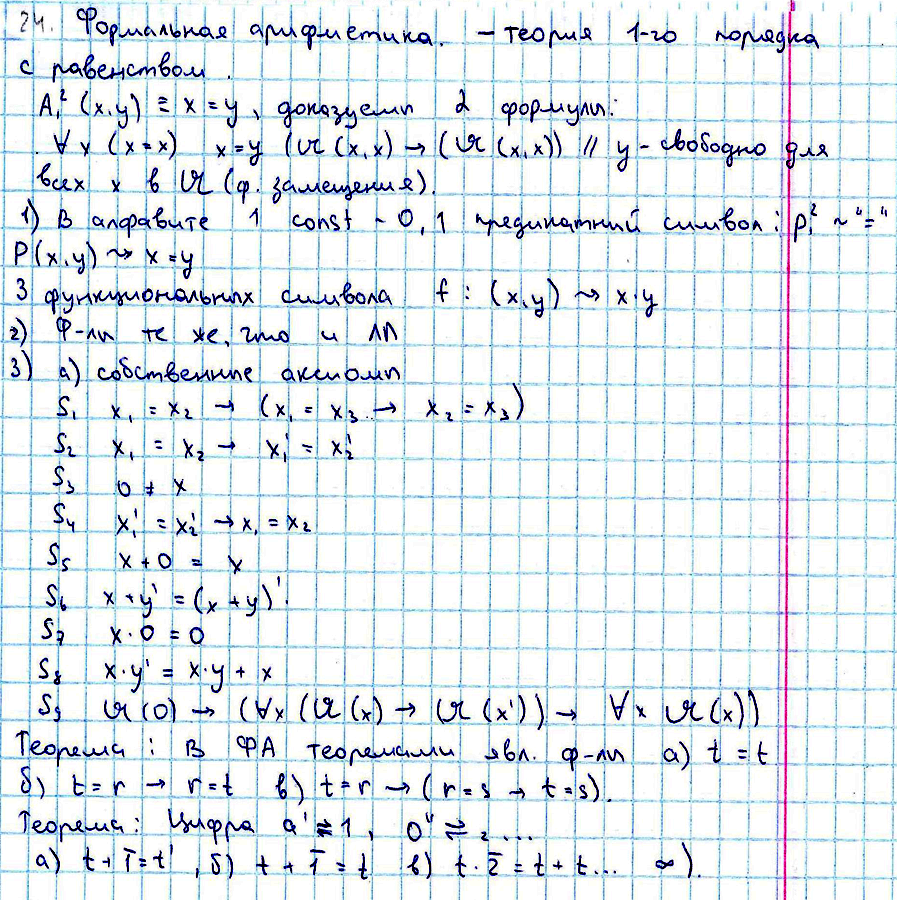 24. Формальная арифметика. – теория 1-го порядка
с равенством.
A₁² (x,y) ≡ x = y, доказуемы 2 формулы:
∀x (x=x) x=y (𝔄(x,x) → (𝔄(x,x)) // y - свободно для
всех x в 𝔄 (ф. замещения).
1) В алфавите 1 const - 0, 1 предикатный символ: P₁² ~ "="
P(x,y) ⇝ x=y
3 функциональных символа f: (x,y) ⇝ x·y
2) Ф-лы те же, что и ЛП
3) а) собственные аксиомы
S₁ x₁ = x₂ → (x₁ = x₃ → x₂ = x₃)
S₂ x₁ = x₂ → x₁' = x₂'
S₃ 0 ≠ x
S₄ x₁' = x₂' → x₁ = x₂
S₅ x + 0 = x
S₆ x + y' = (x + y)'.
S₇ x·0 = 0
S₈ x·y' = x·y + x
S₉ 𝔄(0) → (∀x (𝔄(x) → (𝔄(x')) → ∀x 𝔄(x))
Теорема: В ФА теоремами явл. ф-лы а) t = t
б) t = r → r = t в) t = r → (r = s → t = s).
Теорема: Цифра a' ⇄ 1, 0'' ⇄ 2 ...
а) t + 1̄ = t', б) t + 1̄ = t в) t·2̄ = t + t ... ∞).